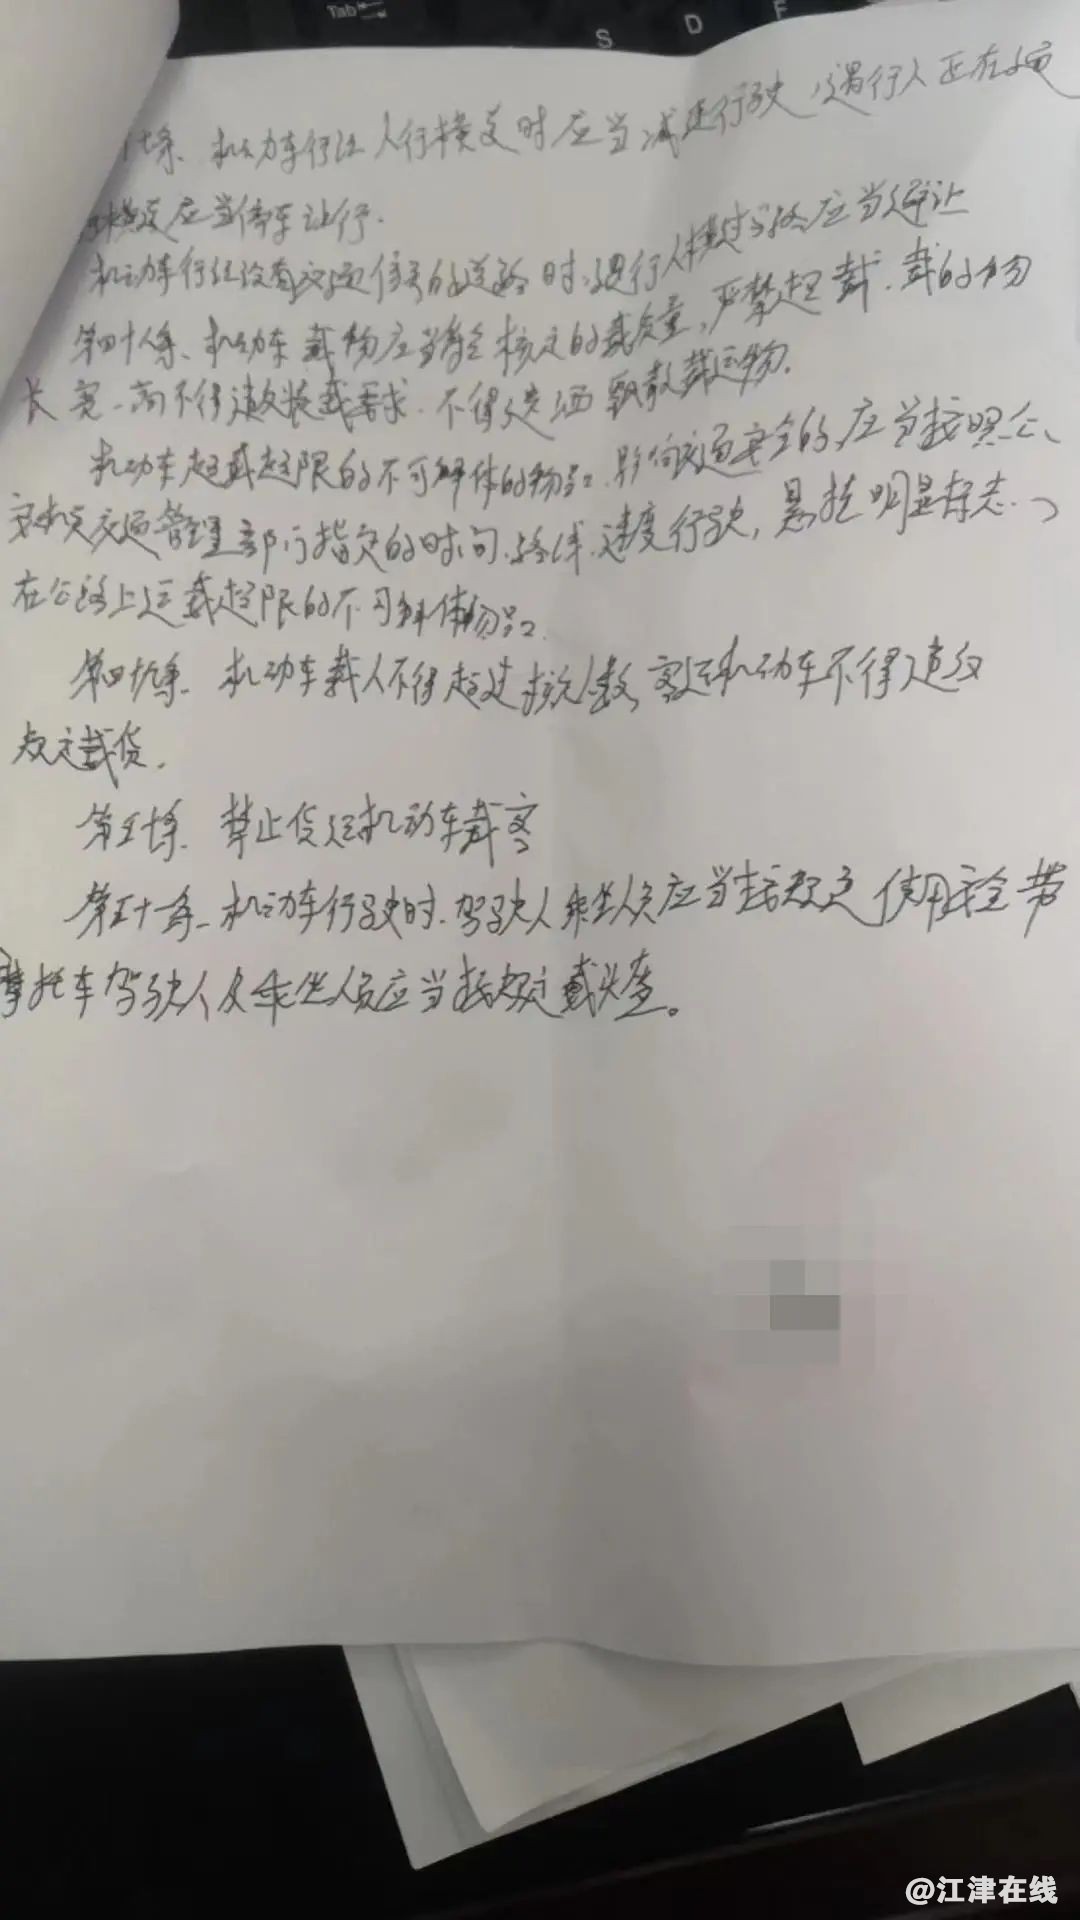 Tab
S D F
十条、机动车行经人行横道时应当减速行驶，遇行人正在通
横道应当停车让行.
机动车行经没有交通信号的道路时，遇行人横过道路应当避让
第四十八条、机动车载物应当符合核定的载质量，严禁超载.载的物
长、宽、高不得违反装载要求.不得遗洒飘散载运物.
机动车超载超限的不可解体的物品.影响交通安全的,应当按照公、
安机关交通管理部门指定的时间.路线.速度行驶，悬挂明显标志.
在公路上运载超限的不可解体物品.
第四十九条、机动车载人不得超过核定人数,客运机动车不得违反
规定载货.
第五十条、禁止货运机动车载客
第五十一条、机动车行驶时.驾驶人乘坐人员应当按规定使用安全带
摩托车驾驶人及乘坐人员应当按规定戴头盔。
@江津在线